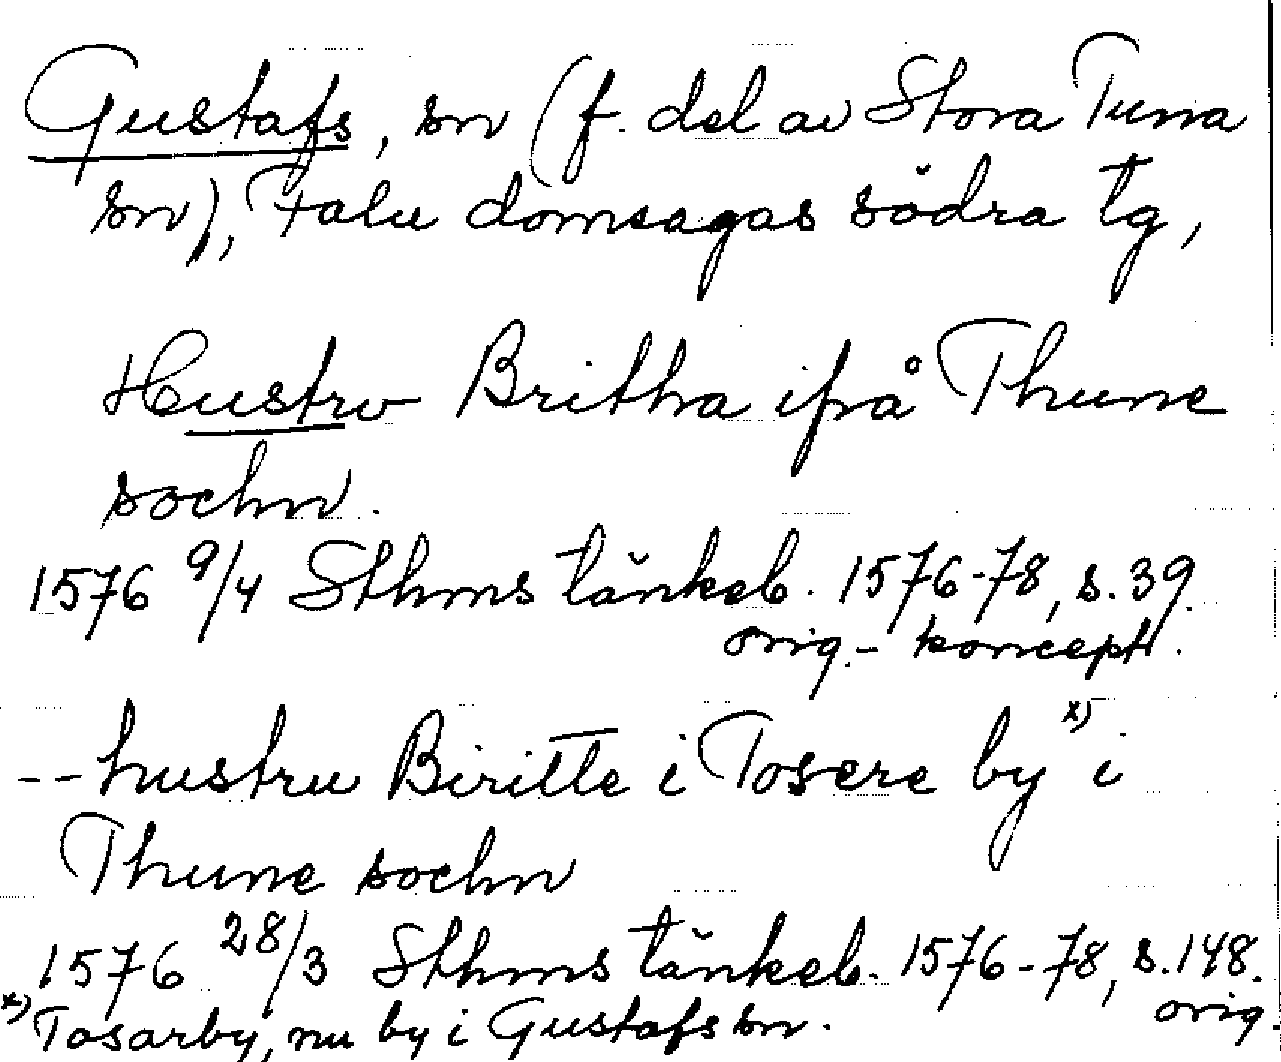 Gustafs, sn (f. del av Stora Tuna
sn), Falu domsagas södra tg,
Hustrv Britha ifrå Thune
sochn.
1576 9/4 Sthms tänkeb. 1576-78, s. 39.
orig.- koncept.
-- hustru Biritte i Tosere by x) i
Thune sochn
1576 28/3 Sthms tänkeb. 1576-78, s. 148.
orig.
x) Tosarby, nu by i Gustafs sn.